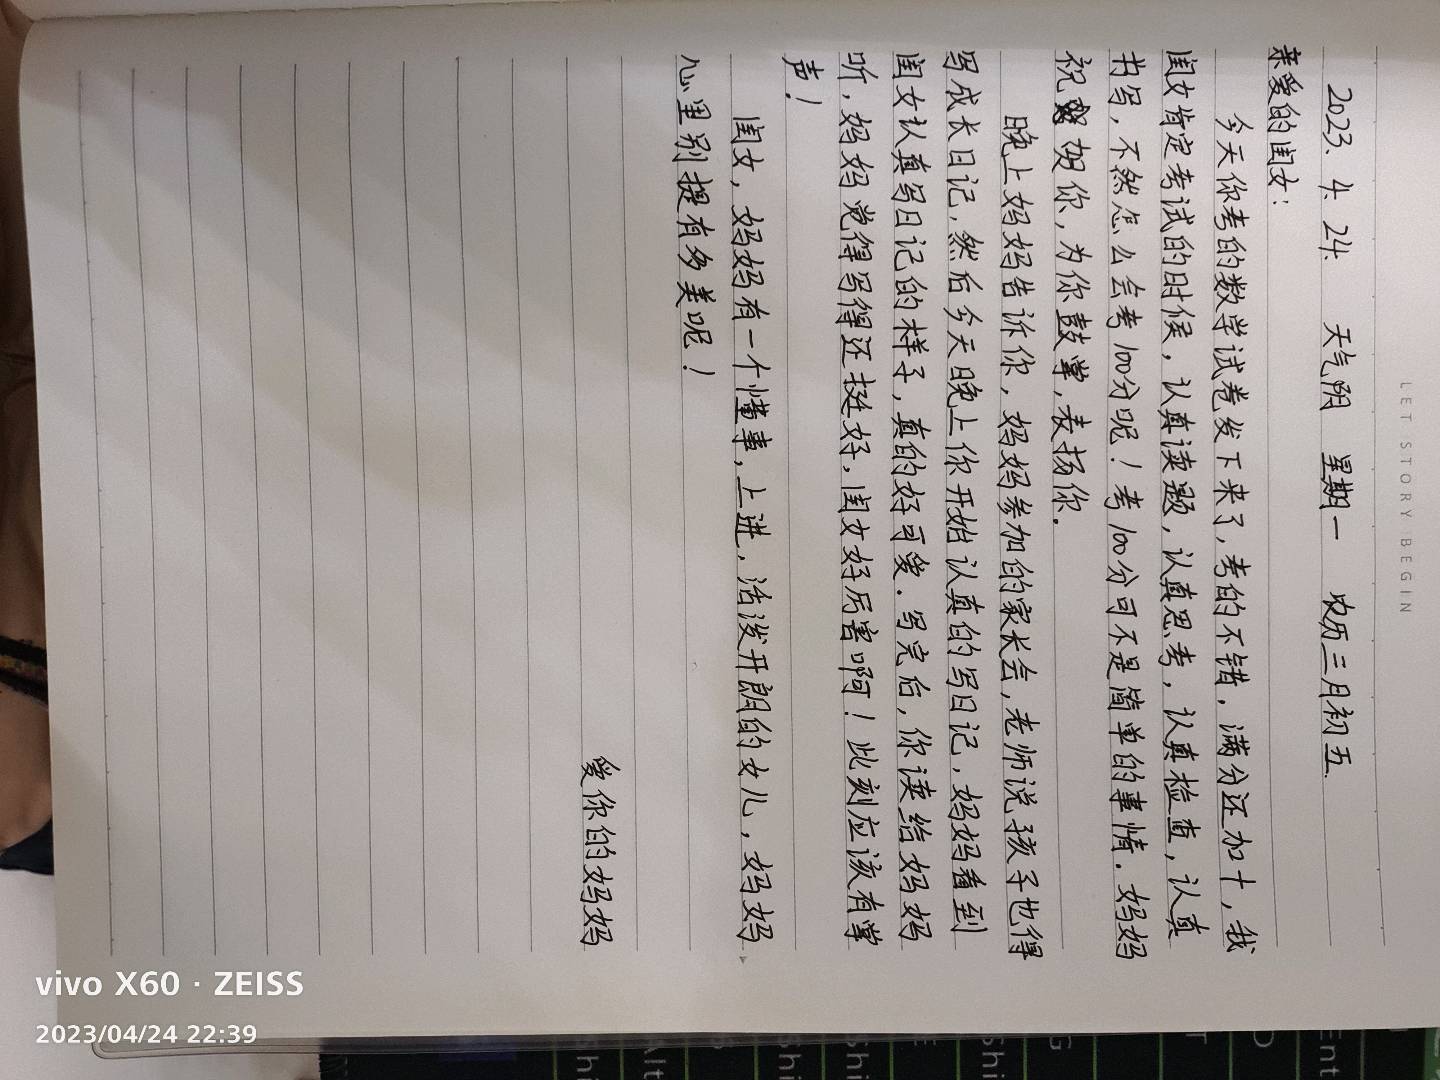 LET STORY BEGIN
2023. 4. 24. 天气阴 星期一 农历三月初五
亲爱的闺女：
今天你考的数学试卷发下来了，考的不错，满分还加十，我
闺女肯定考试的时候，认真读题，认真思考，认真检查，认真
书写，不然怎么会考100分呢！考100分可不是简单的事情．妈妈
祝贺你，为你鼓掌，表扬你．
晚上妈妈告诉你，妈妈参加的家长会，老师说孩子也得
写成长日记，然后今天晚上你开始认真的写日记，妈妈看到
闺女认真写日记的样子，真的好可爱．写完后，你读给妈妈
听，妈妈觉得写得还挺好，闺女好厉害啊！此刻应该有掌
声！
闺女，妈妈有一个懂事，上进，活泼开朗的女儿，妈妈
心里别提有多美呢！
爱你的妈妈
vivo X60 · ZEISS
2023/04/24 22:39
Shi
Alt
S
Shi
Shi
E
Shi
G
T
O
Ent